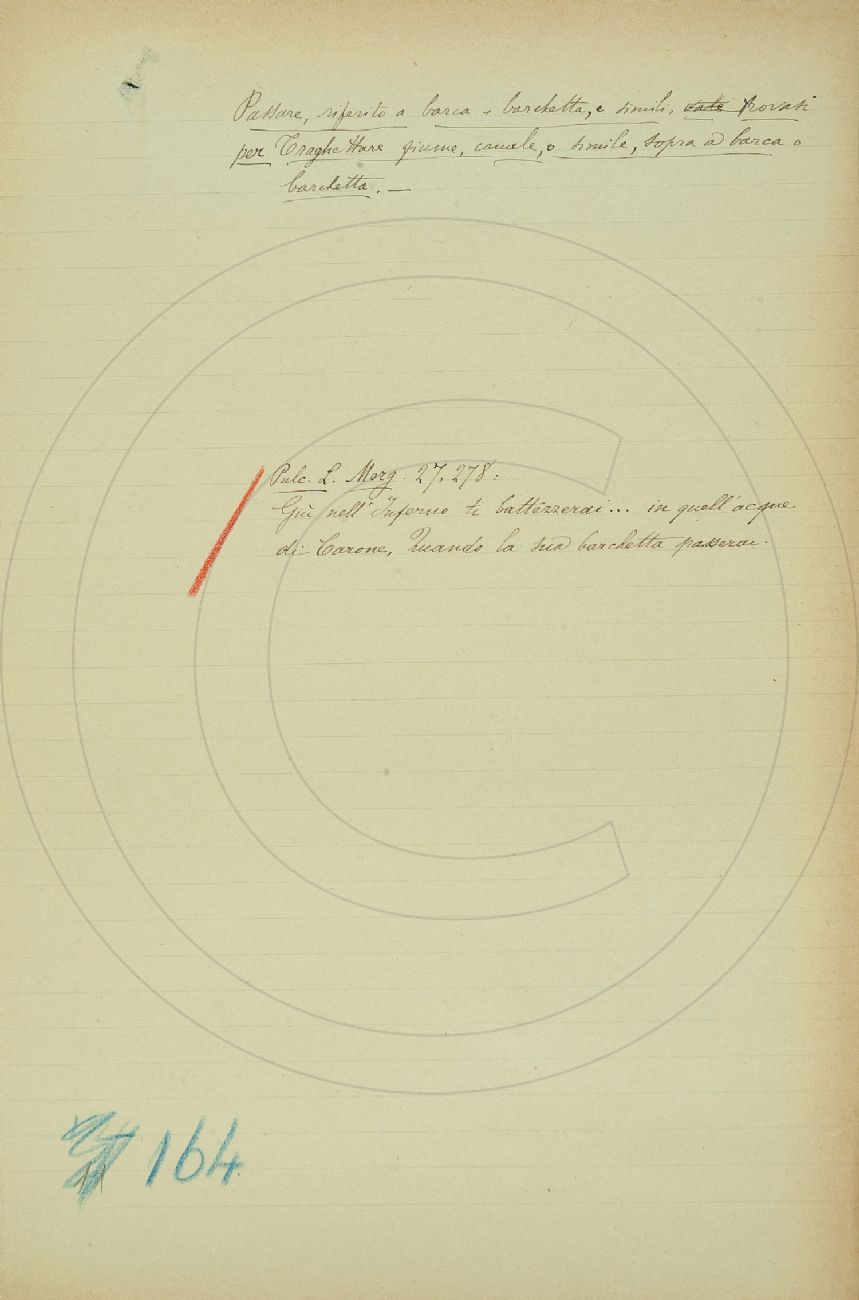 Passare, riferito a barca o barchetta, e simili, vale trovasi
per Traghettare fiume, canale, o simile, sopra a barca o
barchetta. —
Pulc. L. Morg. 27. 278:
Giù nell'Inferno ti battezzerai... in quell'acque
di Carone, Quando la sua barchetta passerai.
164